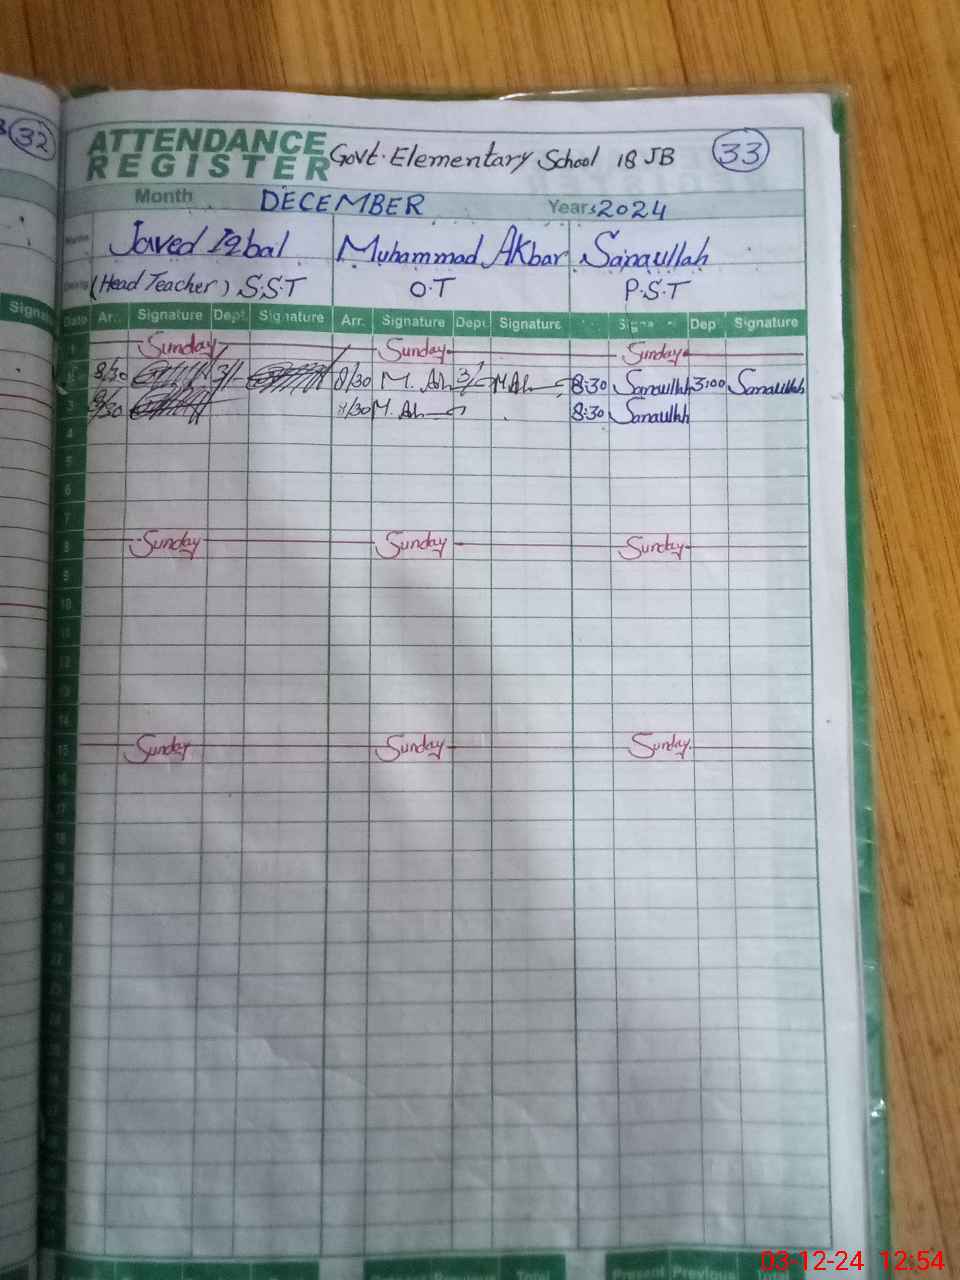 32
ATTENDANCE REGISTER Govt. Elementary School 18 JB 33
Month DECEMBER Year: 2024
Name Javed Iqbal Muhammad Akbar Sanaullah
(Head Teacher) S.S.T O.T P.S.T
Signature
Date Arr. Signature Dept. Signature Arr. Signature Dept. Signature Dep Signature
1 Sunday Sunday Sunday
2 8/30 3/- 8/30 M. Ah 3/- M. Ah 8:30 Sanaullah 3:00 Sanaullah
3 8/30 8/30 M. Ah 8:30 Sanaullah
4
5
6
7
8 Sunday Sunday Sunday
9
10
11
12
13
14
15 Sunday Sunday Sunday
16
17
18
19
20
21
22
Present Previous
03-12-24 12:54